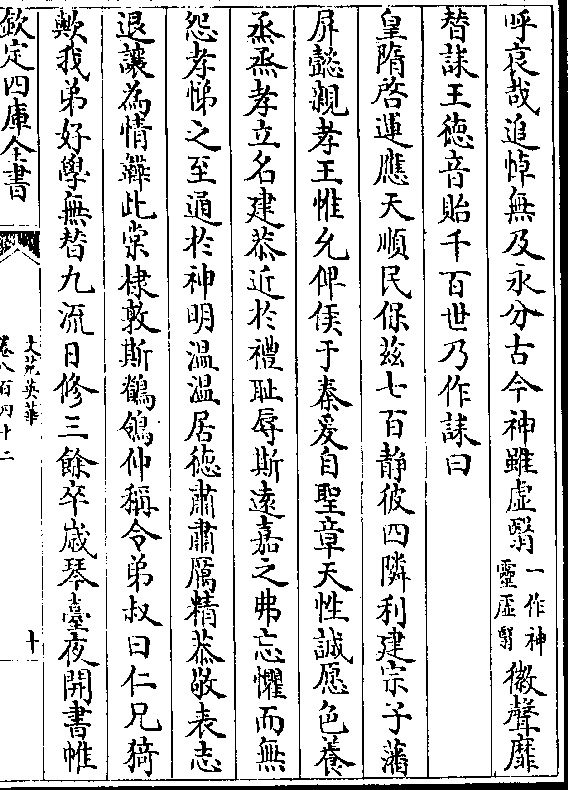 呼哀哉追悼無及永分古今神雖虛翳一作神靈虛翳徽聲靡
替誄王德音貽千百世乃作誄曰
皇隋啓運應天順民保茲七百靜彼四隣利建宗子藩
屏懿親孝王惟允俾侯于秦爰自聖章天性誠愿色養
烝烝孝立名建恭近於禮耻辱斯遠嘉之弗忘懼而無
怨孝悌之至通於神明温温居德肅肅厲精恭敬表志
退讓為情韡此棠棣敦斯鶺鴒仲稱令弟叔曰仁兄猗
歟我弟好學無替九流日修三餘卒歲琴臺夜開書帷
欽定四庫全書
文苑英華
卷八百四十二
十